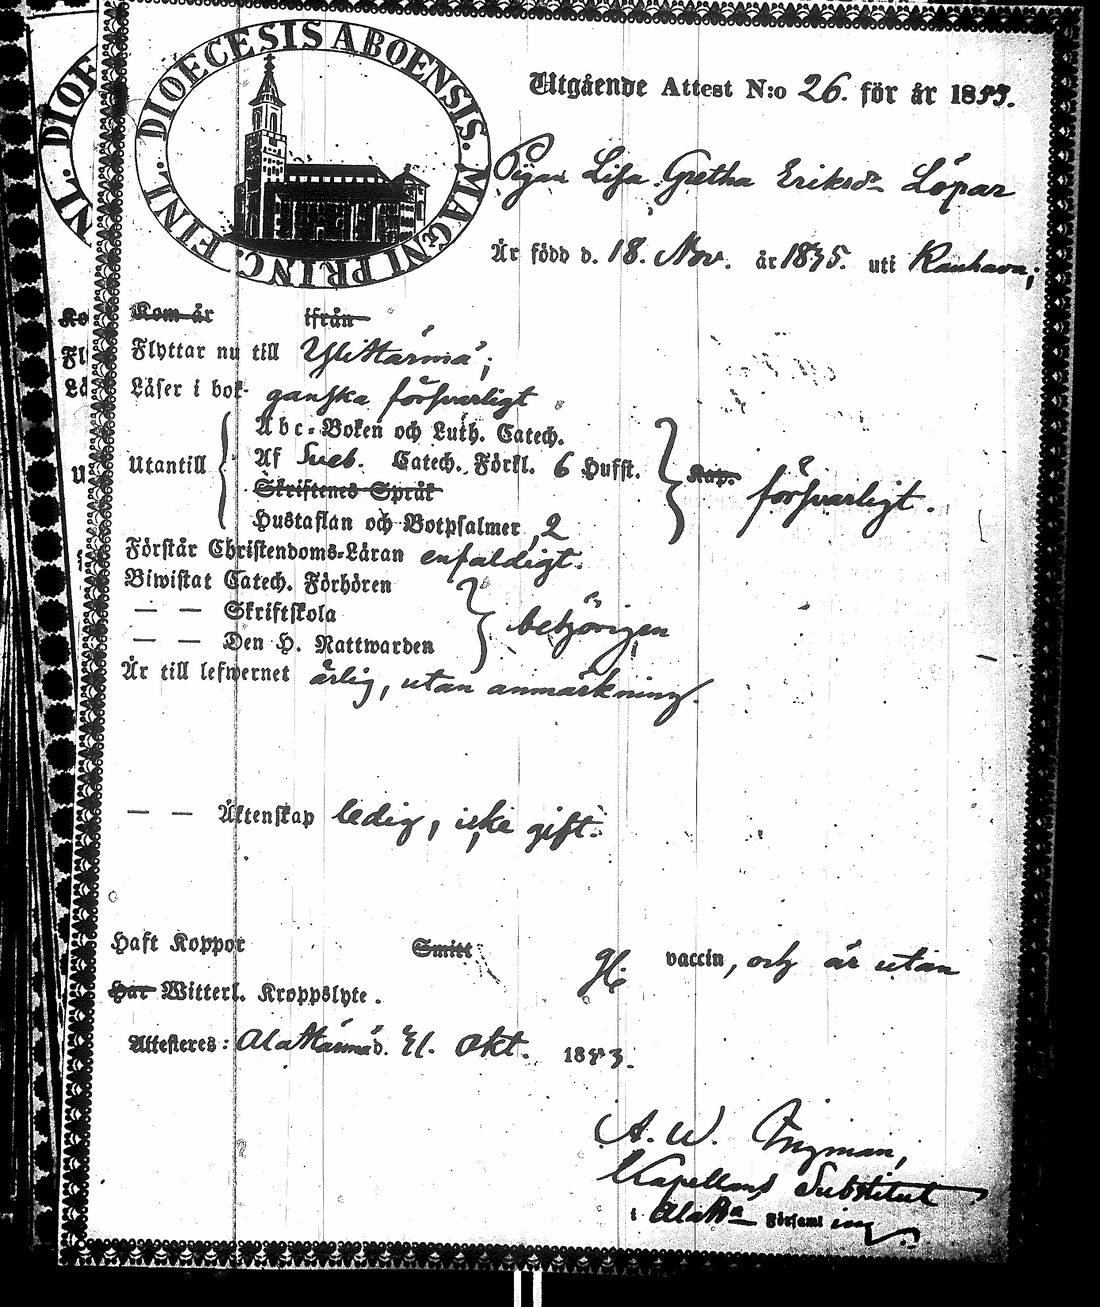 DIOECESIS ABOENSIS. MAGNI PRINC. FINL.
Utgående Attest N:o 26. för år 1853.
Pigan Lisa Gretha Eriksdr Löpar
Är född d. 18. Nov. år 1835. uti Kauhava;
Kom år ifrån
Flyttar nu till Ylihärmä;
Läser i bok ganska försvarligt
Abc-Boken och Luth. Catech.
Utantill Af Sveb. Catech. Förkl. 6 Hufst. Kap. försvarligt.
Skriftenes Språk
Hustaflan och Botpsalmer 2
Förstår Christendoms-Läran enfaldigt.
Biwistat Catech. Förhören
— — Skriftskola behörigen
— — Den H. Nattwarden
Är till lefwernet ärlig, utan anmärkning.
— — Äktenskap ledig, icke gift.
Haft Koppor Smitt vaccin, och är utan
Har Witterl. Kroppslyte.
Attesteres: Alahärmä d. 21. Okt. 1853.
A. W. Ingman,
Kapellans Substitut
i Alahä Församling